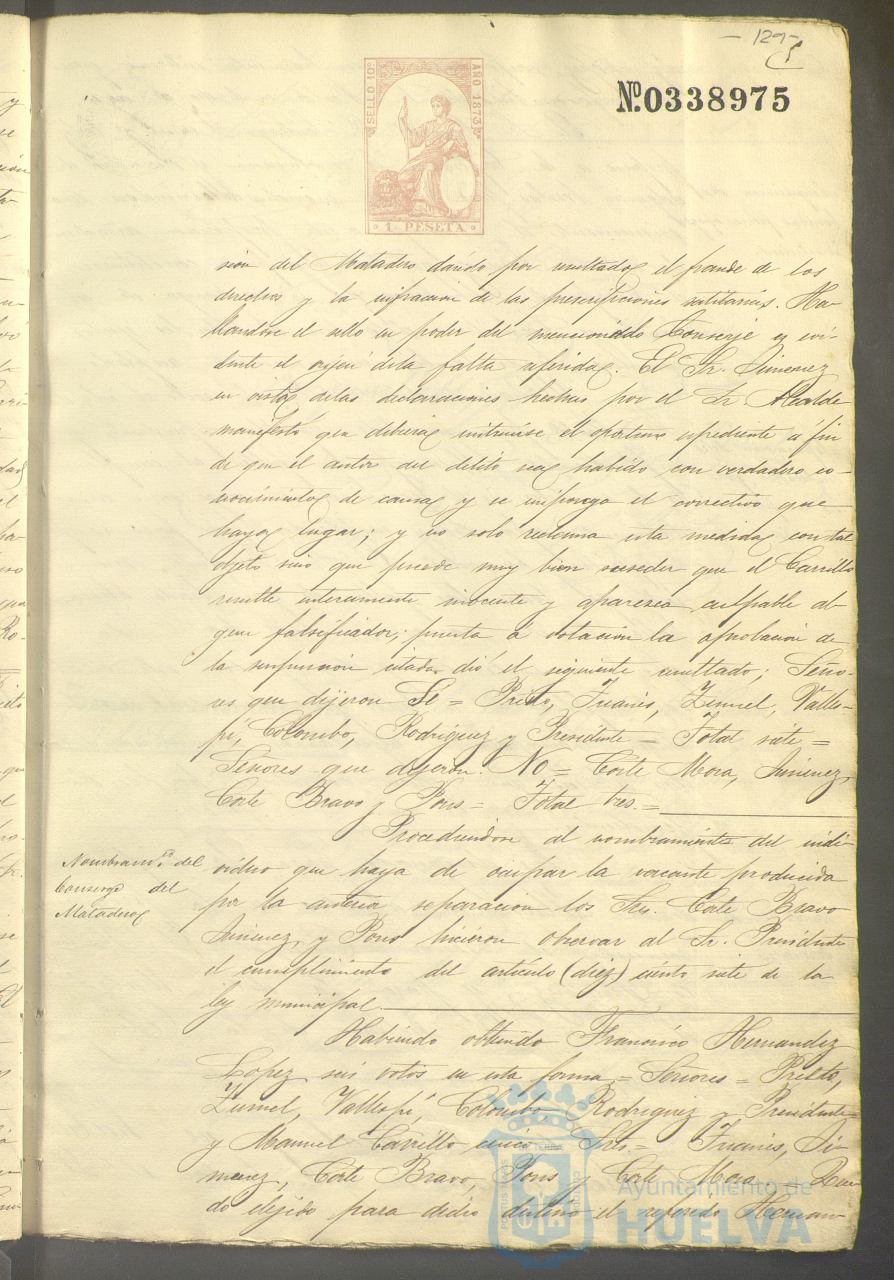 -129-
Nº.0338975
SELLO 10º AÑO 1873
1 PESETA
sion del Matadero dando por resultado el fraude de los
derechos y la infraccion de las prescripciones sanitarias. Ha-
llandose el sello en poder del mencionado Conserje es evi-
dente el orijen dela falta referida. El Sr. Jimenez
en vista delas declaraciones hechas por el Sr. Alcalde
manifestó que deberia instruirse el oportuno espediente á fin
de que el autor del delito sea habido con verdadero co-
nocimiento de causa y se imponga el correctivo que
haya lugar; y no solo reclama esta medida con tal
objeto sino que puede muy bien suceder que el Carrillo
resulte enteramente inocente y aparesca culpable al-
gun falsificador; puesta á votacion la aprobacion de
la suspension citada dió el siguiente resultado; Seño-
res que dijeron Si = Prieto, Juanes, Zumel, Valles-
pí, Colombo, Rodriguez y Presidente = Total siete =
Señores que dijeron: No = Corte Mora, Jimenez,
Corte Bravo y Pons = Total tres. =
Procediendose al nombramiento del indi-
Nombram.to del
Conserge del
Matadero
viduo que haya de ocupar la vacante producida
por la anterior separacion los Sres. Corte Bravo
Jimenez, y Pons hicieron observar al Sr. Presidente
el cumplimiento del artículo (diez) ciento siete de la
ley municipal.
Habiendo obtenido Francisco Hernandez
Lopez seis votos en esta forma = Señores = Prieto,
Zumel, Vallespí, Colombo, Rodriguez y Presidente =
y Manuel Carrillo cinco, Sres. = Juanes, Ji-
menez, Corte Bravo, Pons y Corte Mora. Quedan-
do elejido para dicho destino el referido Hernan-
Ayuntamiento de
HUELVA